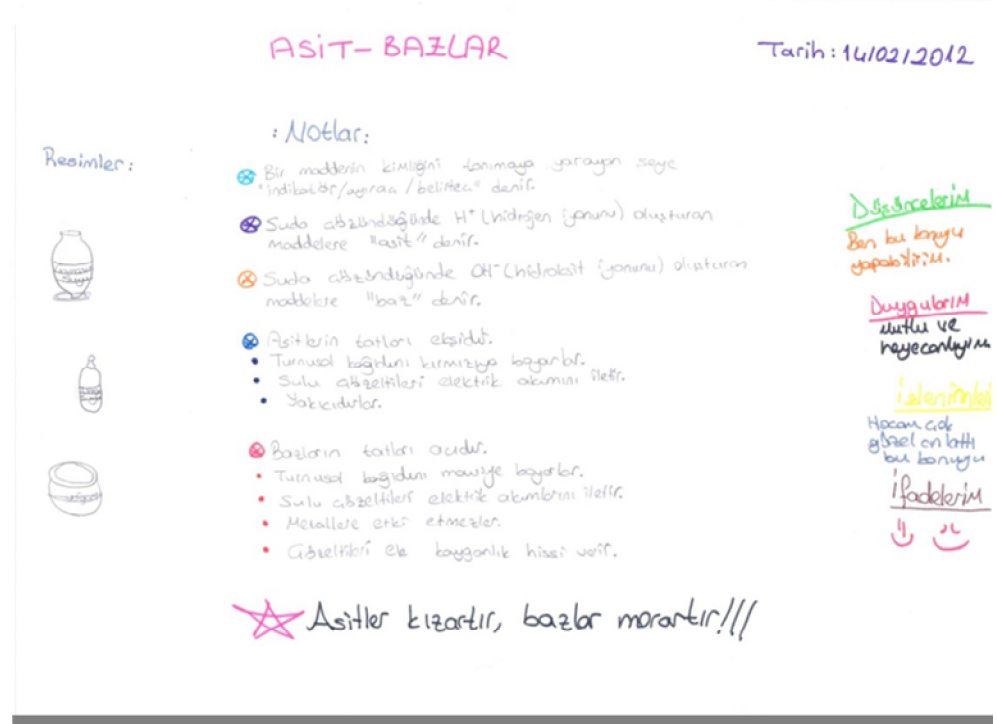 ASİT-BAZLAR
Tarih: 14/02/2012
Resimler:
: Notlar:
Bir maddenin kimliğini tanımaya yarayan şeye
"indikatör/ayıraç/belirteç" denir.
Suda çözündüğünde H⁺ (hidrojen iyonunu) oluşturan
maddelere "asit" denir.
Suda çözündüğünde OH⁻ (hidroksit iyonunu) oluşturan
maddelere "baz" denir.
Asitlerin tatları ekşidir.
• Turnusol kağıdını kırmızıya boyarlar.
• Sulu çözeltileri elektrik akımını iletir.
• Yakıcıdırlar.
Bazların tatları acıdır.
• Turnusol kağıdını maviye boyarlar.
• Sulu çözeltileri elektrik akımlarını iletir.
• Metallere etki etmezler.
• Çözeltileri ele kayganlık hissi verir.
Asitler kızartır, bazlar morartır!!!
Düşüncelerim
Ben bu konuyu
yapabilirim.
Duygularım
Mutlu ve
heyecanlıyım
İzlenimleri
Hocam çok
güzel anlattı
bu konuyu
İfadelerim